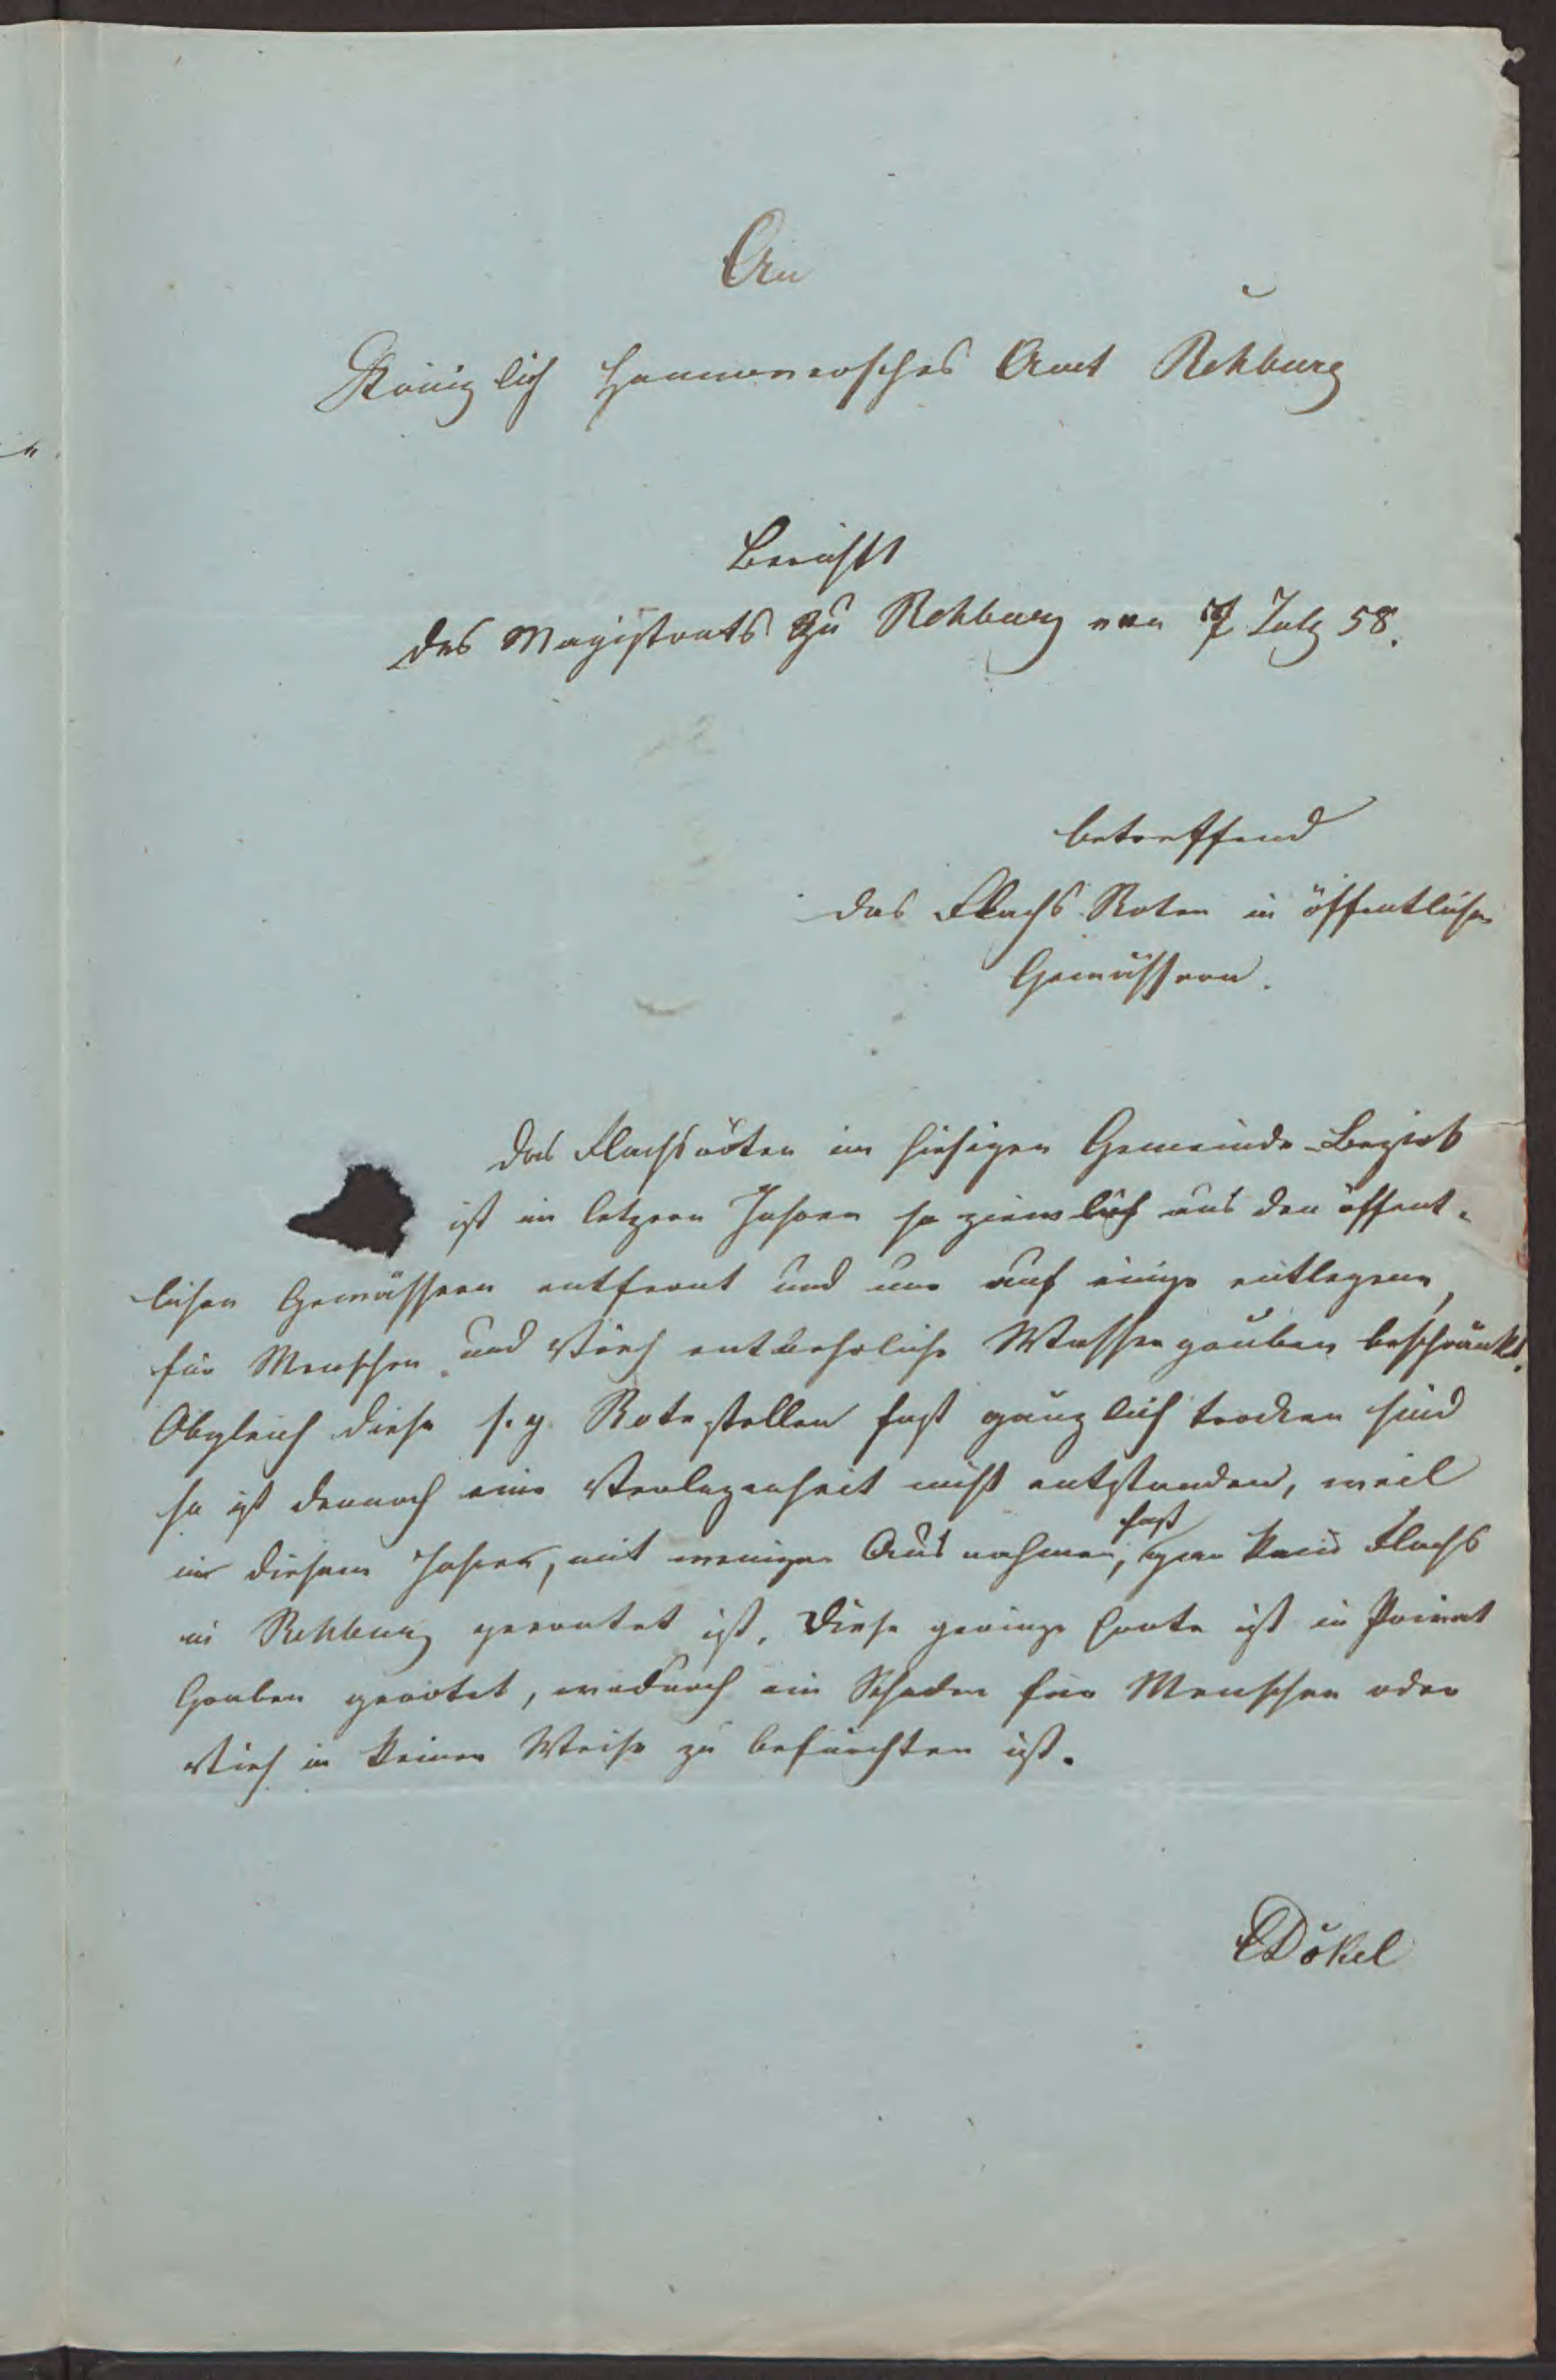 An
Königlich Hannoversches Amt Rehburg
Bericht
des Magistrats zu Rehburg von 7 July 58.
betreffend
das Flachs Roten in öffentlichen
Gewässern.
Das Flachsröten im hiesigen Gemeinde-Bezirk
ist in letzern Jahren so ziemlich aus den öffent-
lichen Gewässern entfernt und nur auf einige entlegene,
für Menschen und Vieh entbehrliche Wassergruben beschränkt.
Obgleich diese s. g. Rotestellen fast gänzlich trocken sind
so ist dennoch eine Verlegenheit nicht entstanden, weil
in diesem Jahre, mit weniger Ausnahmen, fast gar kein Flachs
in Rehburg geerntet ist. Diese geringe Ernte ist in Privat
Gruben gerötet, wodurch ein Schaden für Menschen oder
Vieh in keiner Weise zu befürchten ist.
Dökel